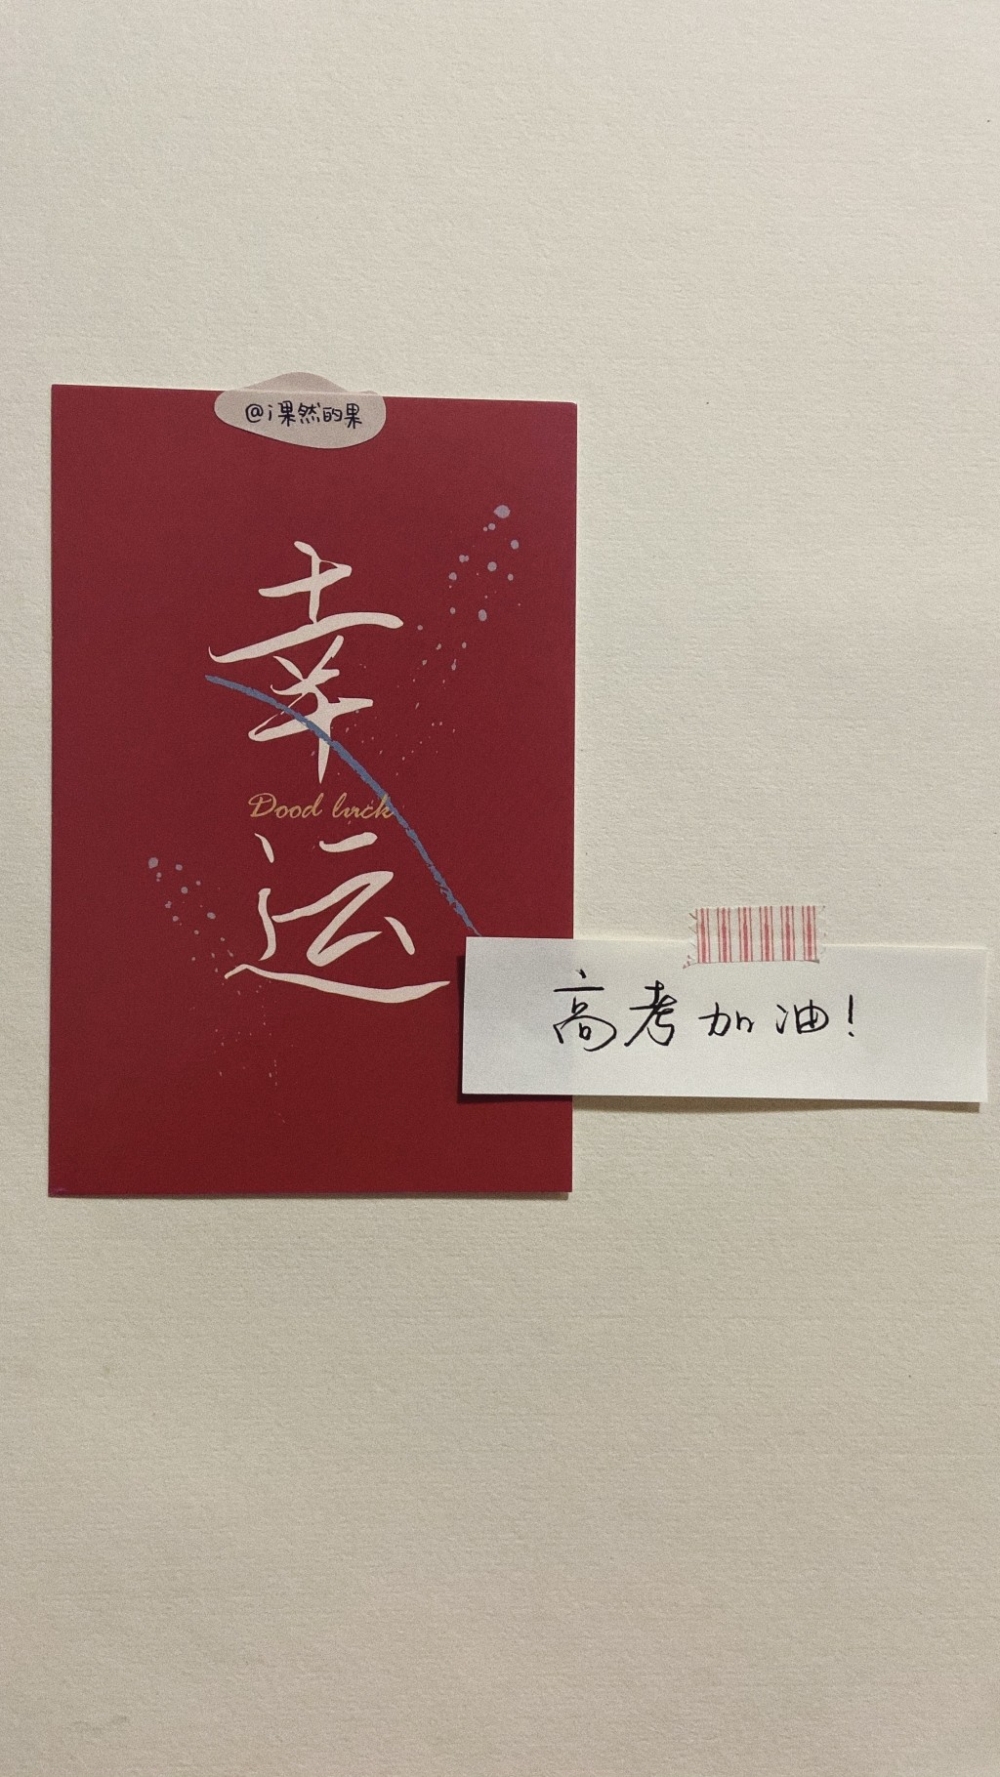 @i果然的果
幸
Dood luck
运
高考加油!